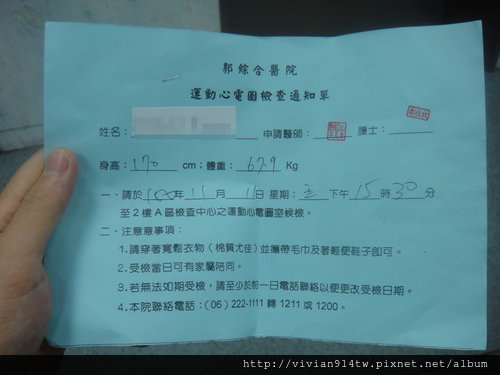 郭綜合醫院
運動心電圖檢查通知單
姓名： 申請醫師： 護士：
身高：170 cm；體重：67.9 Kg
一、請於100年11月11日 星期：五 下午15時30分
至2樓A區檢查中心之運動心電圖室候檢。
二、注意意事項：
1.請穿著寬鬆衣物（棉質尤佳）並攜帶毛巾及著輕便鞋子即可。
2.受檢當日可有家屬陪同。
3.若無法如期受檢，請至少於前一日電話聯絡以便更改受檢日期。
4.本院聯絡電話：(06) 222-1111 轉 1211 或 1200。
http://vivian914tw.pixnet.net/album